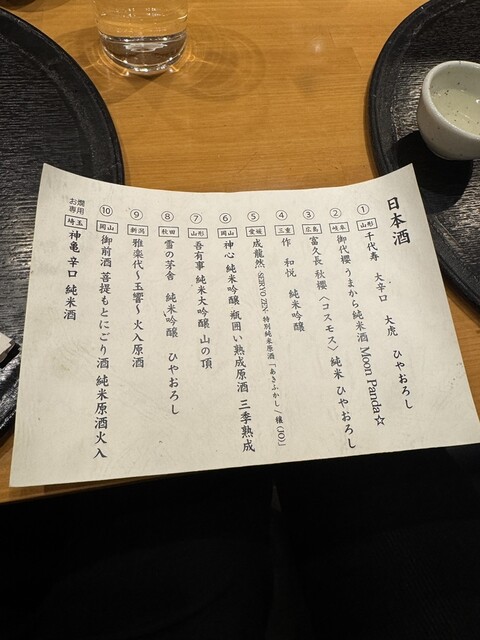 日本酒
① 山形 千代寿 大辛口 大虎 ひやおろし
② 岐阜 御代櫻 うまから純米酒 Moon Panda☆
③ 広島 富久長 秋櫻〈コスモス〉純米 ひやおろし
④ 三重 作 和悦 純米吟醸
⑤ 愛媛 成龍然 SEIRYO ZEN 特別純米原酒「あきふかし/穣(JO)」
⑥ 岡山 神心 純米吟醸 瓶囲い熟成原酒 三季熟成
⑦ 山形 吾有事 純米大吟醸 山の頂
⑧ 秋田 雪の茅舎 純米吟醸 ひやおろし
⑨ 新潟 雅楽代〜玉響〜 火入原酒
⑩ 岡山 御前酒 菩提もとにごり酒 純米原酒火入
お燗専用 埼玉 神亀 辛口 純米酒